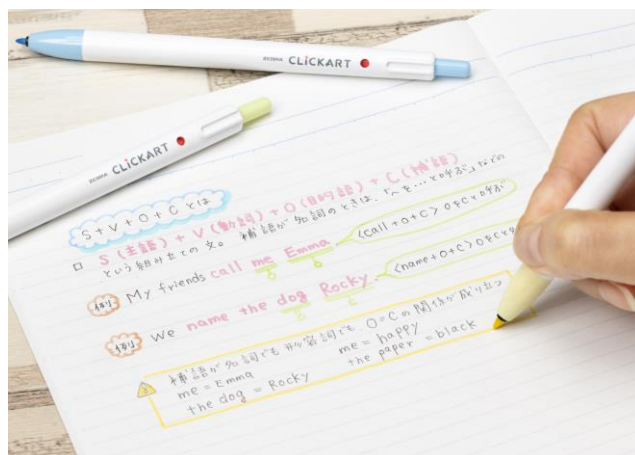 ZEBRA CLiCKART
ZEBRA CLiCKART
S+V+O+Cとは
S(主語)+V(動詞)+O(目的語)+C(補語)
という組み立ての文。補語が名詞のときは、「〜を…と呼ぶ」などの
例 My friends call me Emma 〈call+O+C〉OをCと呼ぶ
O C
例 We name the dog Rocky 〈name+O+C〉OをCと
O C
補語が名詞でも形容詞でも、O=Cの関係が成り立つ
me = Emma me = happy
the dog = Rocky the paper = black